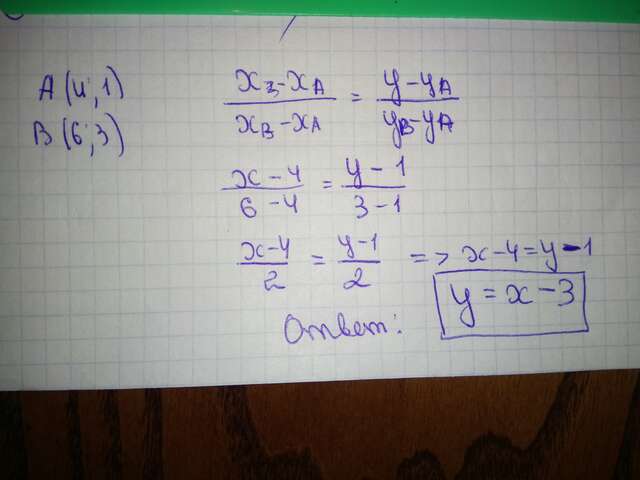 A(4;1)
B(6;3)
\frac{x_B-x_A}{x_B-x_A} = \frac{y-y_A}{y_B-y_A}
\frac{x-4}{6-4} = \frac{y-1}{3-1}
\frac{x-4}{2} = \frac{y-1}{2} => x-4=y-1
Ответ: y=x-3